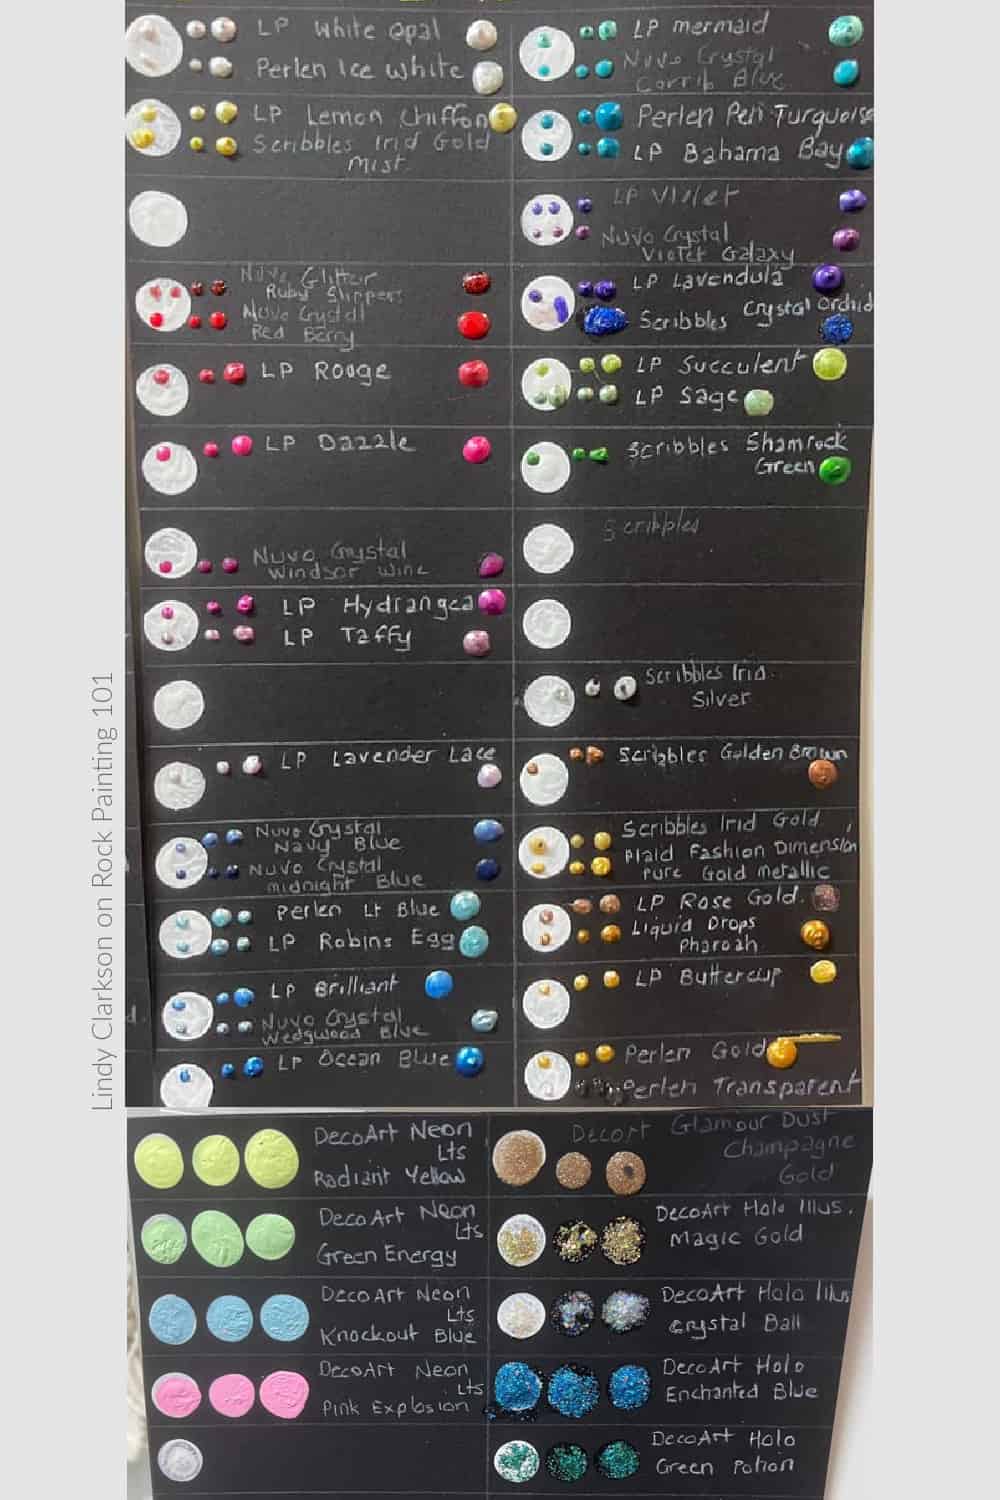 LP White Opal
Perlen Ice White
LP Lemon Chiffon
Scribbles Irid Gold
Mist
Nuvo Glitter
Ruby Slippers
Nuvo Crystal
Red Berry
LP Rouge
LP Dazzle
Nuvo Crystal
Windsor Wine
LP Hydrangea
LP Taffy
LP Lavender Lace
Nuvo Crystal
Navy Blue
Nuvo Crystal
Midnight Blue
Perlen Lt Blue
LP Robins Egg
LP Brilliant
Nuvo Crystal
Wedgwood Blue
LP Ocean Blue
LP mermaid
Nuvo Crystal
Corrib Blue
Perlen Perl Turquoise
LP Bahama Bay
LP Violet
Nuvo Crystal
Violet Galaxy
LP Lavendula
Scribbles Crystal Orchid
LP Succulent
LP Sage
Scribbles Shamrock
Green
Scribbles
Scribbles Irid.
Silver
Scribbles Golden Brown
Scribbles Irid Gold
Plaid Fashion Dimension
Pure Gold Metallic
LP Rose Gold.
Liquid Drops
Pharoah
LP Buttercup
Perlen Gold
Perlen Transparent
DecoArt Neon
Lts
Radiant Yellow
DecoArt Neon
Lts
Green Energy
DecoArt Neon
Lts
Knockout Blue
DecoArt Neon
Lts
Pink Explosion
DecoArt Glamour Dust
Champagne
Gold
DecoArt Holo Illus.
Magic Gold
DecoArt Holo Illus
Crystal Ball
DecoArt Holo
Enchanted Blue
DecoArt Holo
Green Potion
Lindy Clarkson on Rock Painting 101